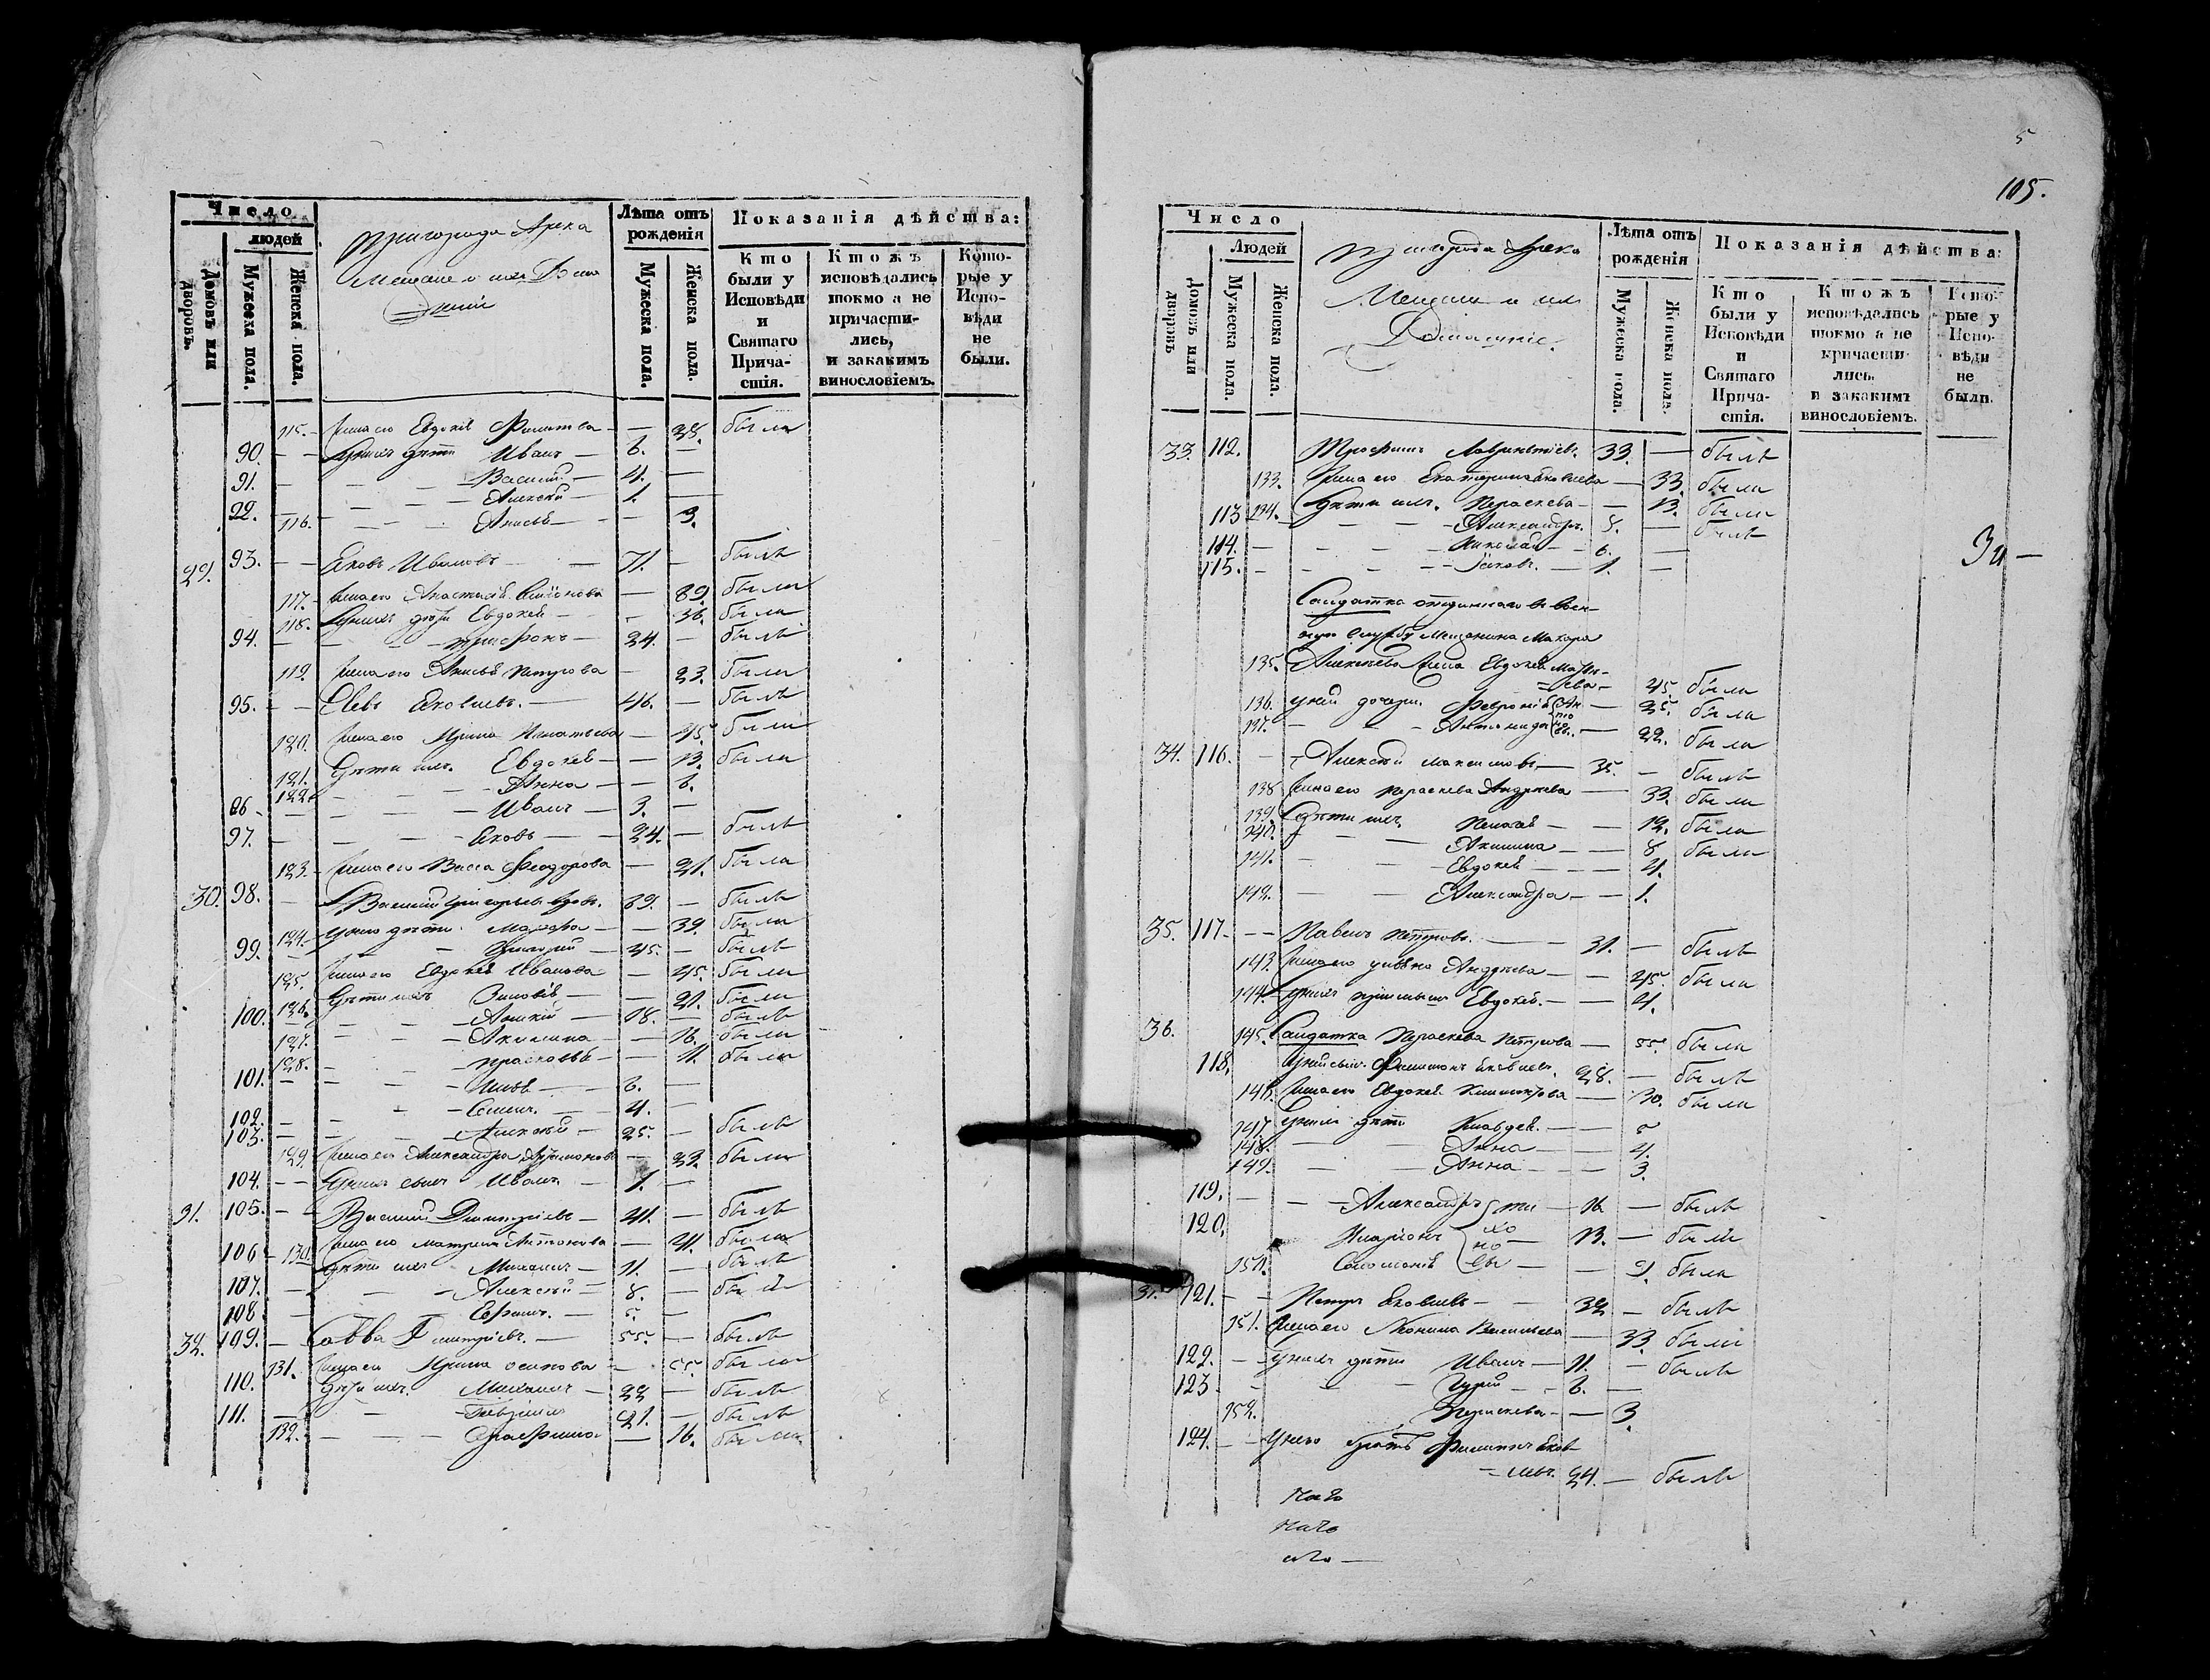 Число
людей
Домовъ или дворовъ.
Мужеска пола.
Женска пола.
пригорода Арска
Мещане и ихъ Дома
шнiи
Лѣта отъ рожденія
Мужеска пола.
Женска пола.
Показанія дѣйства:
Кто были у Исповѣди и Святаго Прича-стія.
Ктожъ исповѣдались токмо а не причасти-лись, и закакимъ винословіемъ.
Кото-рые у Испо-вѣди не были.
115. жена его Евдокія Филипова — 28. была
90. У нихъ дѣти Иванъ — 6. —
91. Василій — 4. —
92. Алексѣй — 1. —
116. Анисья — 3.
29. 93. Яковъ Ивановъ 71. — былъ
117. жена его Анастасія — 69. была
118. У нихъ дѣти Евдокея — 36. была
94. Трифонъ — 24. — былъ
119. жена его Анисья Петрова — 23. была
95. Левъ Яковлевъ. — 46. — былъ
120. жена его Ирина Игнатьева — 45. была
121. Дѣти ихъ Евдокея — 13. была
122. Анна — 6.
96. Иванъ — 3. —
97. Яковъ — 24. — былъ
123. жена его Васса Феодорова — 21. была
30. 98. Василий Григорьевъ вдовъ. 69. — былъ
124. у него дѣти Марфа — 39. была
99. Григорий — 45. — былъ
125. жена его Евдокея Иванова — 45. была
126. Дѣти ихъ Зиновія — 21. была
100. 18. — былъ
127. Акилина — 16. была
128. Прасковья — 11. была
101. Илья — 6. —
102. Семенъ. — 4. —
103. Алексѣй — 25. — былъ
129. жена его Александра Артамонова — 23. была
104. У нихъ сынъ Иванъ — 1. —
31. 105. Василий Дмитріевъ — 41. — былъ
106. 130. жена его Матрена Антонова — 41. была
Дѣти ихъ Михаилъ — 11. — былъ
107. Алексѣй — 8. — былъ
108. Ефимъ. — 5. —
32. 109. Савва Дмитріевъ. — 55. — былъ
131. жена его Ирина Осипова — 55. была
110. Дѣти ихъ. Михаилъ — 22 — былъ
111. Гавриилъ 21. — былъ
132. Серафима — 16. была
5
105.
Число
Людей
Домовъ или дворовъ
Мужеска пола.
Женска пола.
пригорода Арска
Мещане и ихъ
Домашние.
Лѣта отъ рожденія
Мужеска пола.
Женска пола.
Показанія дѣйства:
Кто были у Исповѣди и Святаго Прича-стія.
Ктожъ исповѣдались токмо а не причасти-лись. и закакимъ винословіемъ.
Кото-рые у Испо-вѣди не были.
33. 112. Трофимъ Лаврентіевъ. 33. — былъ
133. жена его Екатерина Яковлева — 33. была
113 134. Дѣти ихъ. Параскева — 13. была
Александръ. 8. — былъ
114. Николай — 6. —
115. Іаковъ. — 1. —
Солдатка отданнаго въ воен-
ную службу Мещанина Макара
135. Алексѣева жена Евдокея Матвѣ-
ева — 45. была
136. у ней дочери Феврония — 25. была
137. Антонида — 22. была
34. 116. Алексѣй Максимовъ — 35. — былъ
138 жена его Параскева Андреева — 33. была
139. Дѣти ихъ Пелагея — 12. была
140. Акилина — 8 была
141. Евдокея — 4.
142. Александра — 1.
35. 117. Павелъ Петровъ. — 31. — былъ
143. жена его Ульяна Андреева — 45. была
144. у нихъ приемышъ Евдокея. — 4.
36. 145. Солдатка Параскева Петрова — 55. была
118. У ней сынъ Филимонъ Яковлевъ. 28. — былъ
146. жена его Евдокея — 30. была
147. У нихъ дѣти Клавдея. — 5
148. Анна — 4.
149. Анна — 3.
119. Александръ 16 — былъ
120. Иларионъ 13. — былъ
150. Соломонія — 9. была
37. 121. Петръ Яковлевъ — 32 — былъ
151. жена его Неонила Васильева — 33. была
122. У нихъ дѣти Иванъ — 11. — былъ
123 Гурий — 6. —
152. Параскева — 3.
124. У него братъ Филипъ Яков-
левъ. 24. — былъ